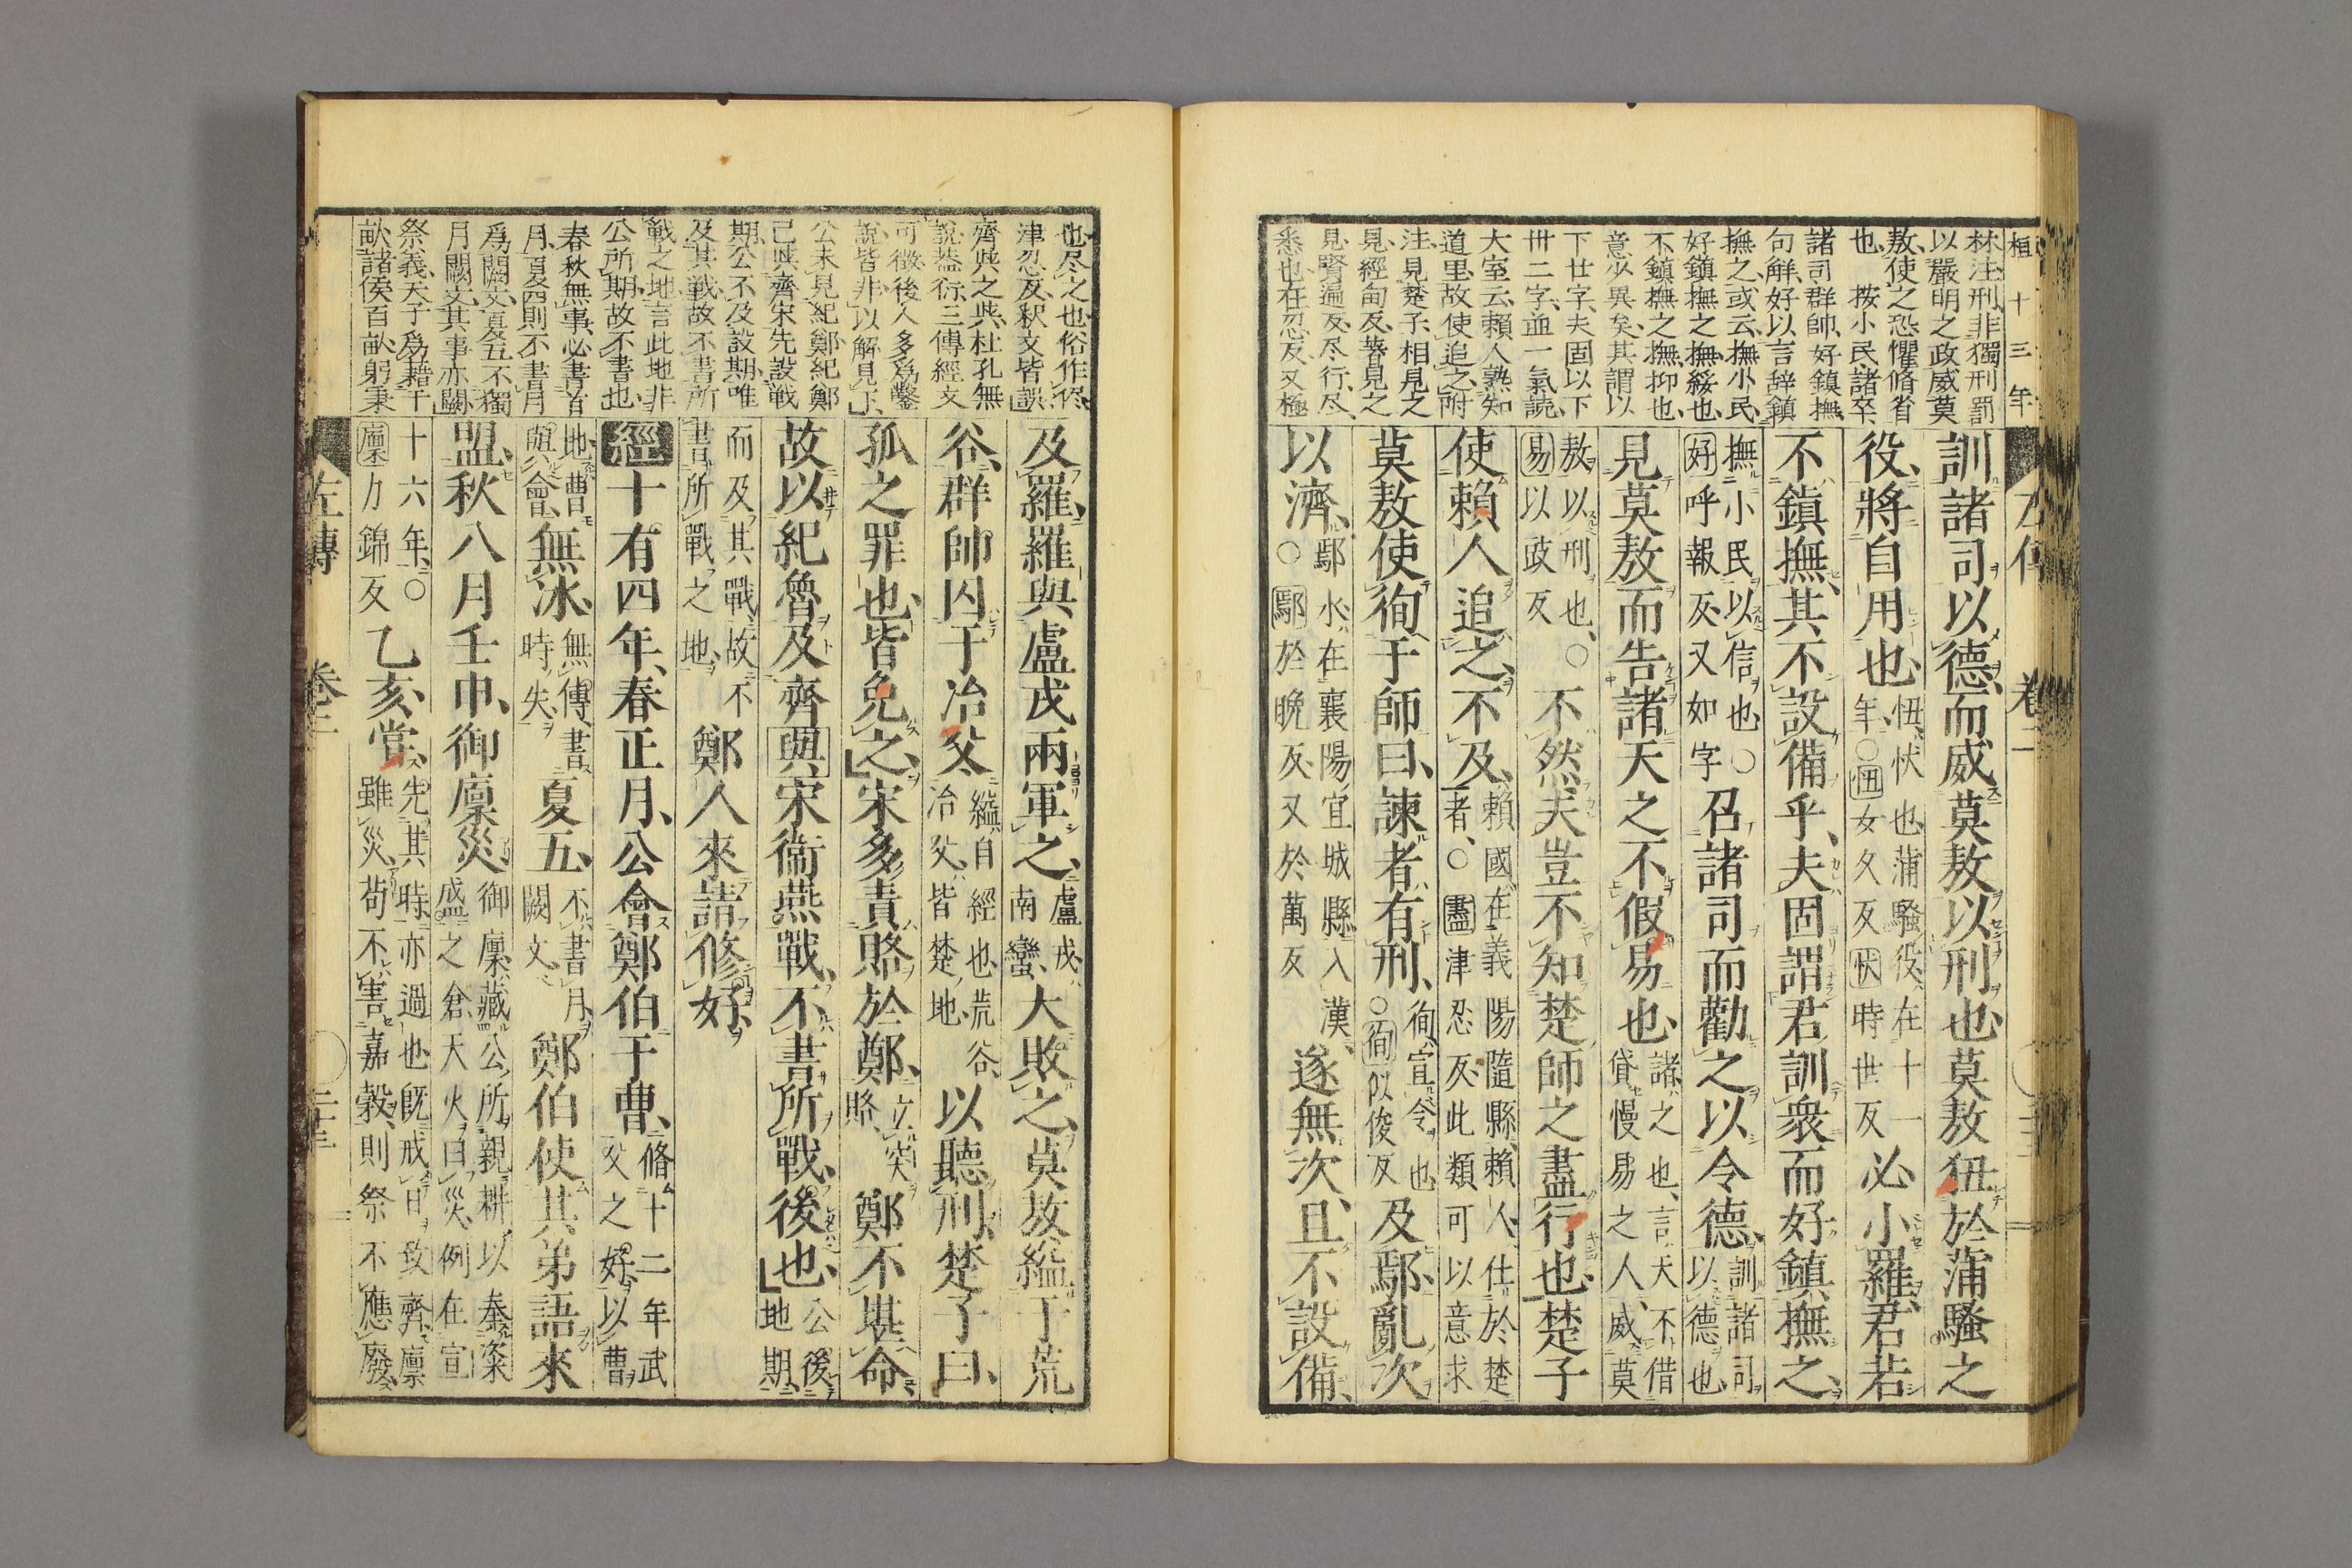 桓十三年
左傳 卷二
林注刑非獨刑罰
以嚴明之政威莫
敖使之恐懼脩省
也 按小民諸卒
諸司群帥好鎮撫
句解好以言辭鎮
撫之或云撫小民
好鎮撫之撫綏也
不鎮撫之撫抑也
意少異矣其謂以
下廿字夫固以下
卅二字並一氣読
大室云賴人熟知
道里故使追之附
注見楚子相見之
見經甸反著見之
見賢遍反尽行尽
悉也在忍反又極
訓諸司以德而威莫敖以刑也莫敖狃於蒲騷之
役將自用也狃忕也蒲騷役在十一年○狃女久反忕時世反必小羅君若
不鎮撫其不設備乎夫固謂君訓衆而好鎮撫之
撫小民以信也○好呼報反又如字召諸司而勸之以令德訓諸司以德也
見莫敖而告諸天之不假易也諸之也言天不借貸慢易之人威莫
敖以刑也○易以豉反不然夫豈不知楚師之盡行也楚子
使賴人追之不及賴國在義陽隨縣賴人仕於楚者○盡津忍反此類可以意求
莫敖使徇于師曰諫者有刑徇宣令也○徇似俊反及鄢亂次
以濟鄢水在襄陽宜城縣入漢○鄢於晚反又於萬反遂無次且不設備
也尽之也俗作侭
津忍反釈文皆誤
齊與之與杜孔無
説葢衍三傳經文
可徴後人多爲鑿
説皆非以解見下
公未見紀鄭紀鄭
己與齊宋先設戰
期公不及設期唯
及其戦故不書所
戦之地言此地非
公所期故不書也
春秋無事必書首
月夏四則不書月
爲闕文夏五不獨
月闕文其事亦闕
祭義天子爲藉千
畝諸侯百畝躬秉
及羅羅與盧戎兩軍之盧戎南蠻大敗之莫敖縊于荒
谷群帥囚于冶父縊自經也荒谷冶父皆楚地以聽刑楚子曰
孤之罪也皆免之宋多責賂於鄭立突賂鄭不堪命
故以紀魯及齊與宋衞燕戰不書所戰後也公後地期
而及其戰故不書所戰之地鄭人來請修好
經十有四年春正月公會鄭伯于曹脩十二年武父之好以曹
地曹與會無冰無傳書時失夏五不書月闕文鄭伯使其弟語來
盟秋八月壬申御廩災御廩藏公所親耕以奉粢盛之倉天火曰災例在宣
十六年○廩力錦反乙亥嘗先其時亦過也既戒日致齊廩雖災苟不害嘉穀則祭不應廢
左傳 卷二 二十三